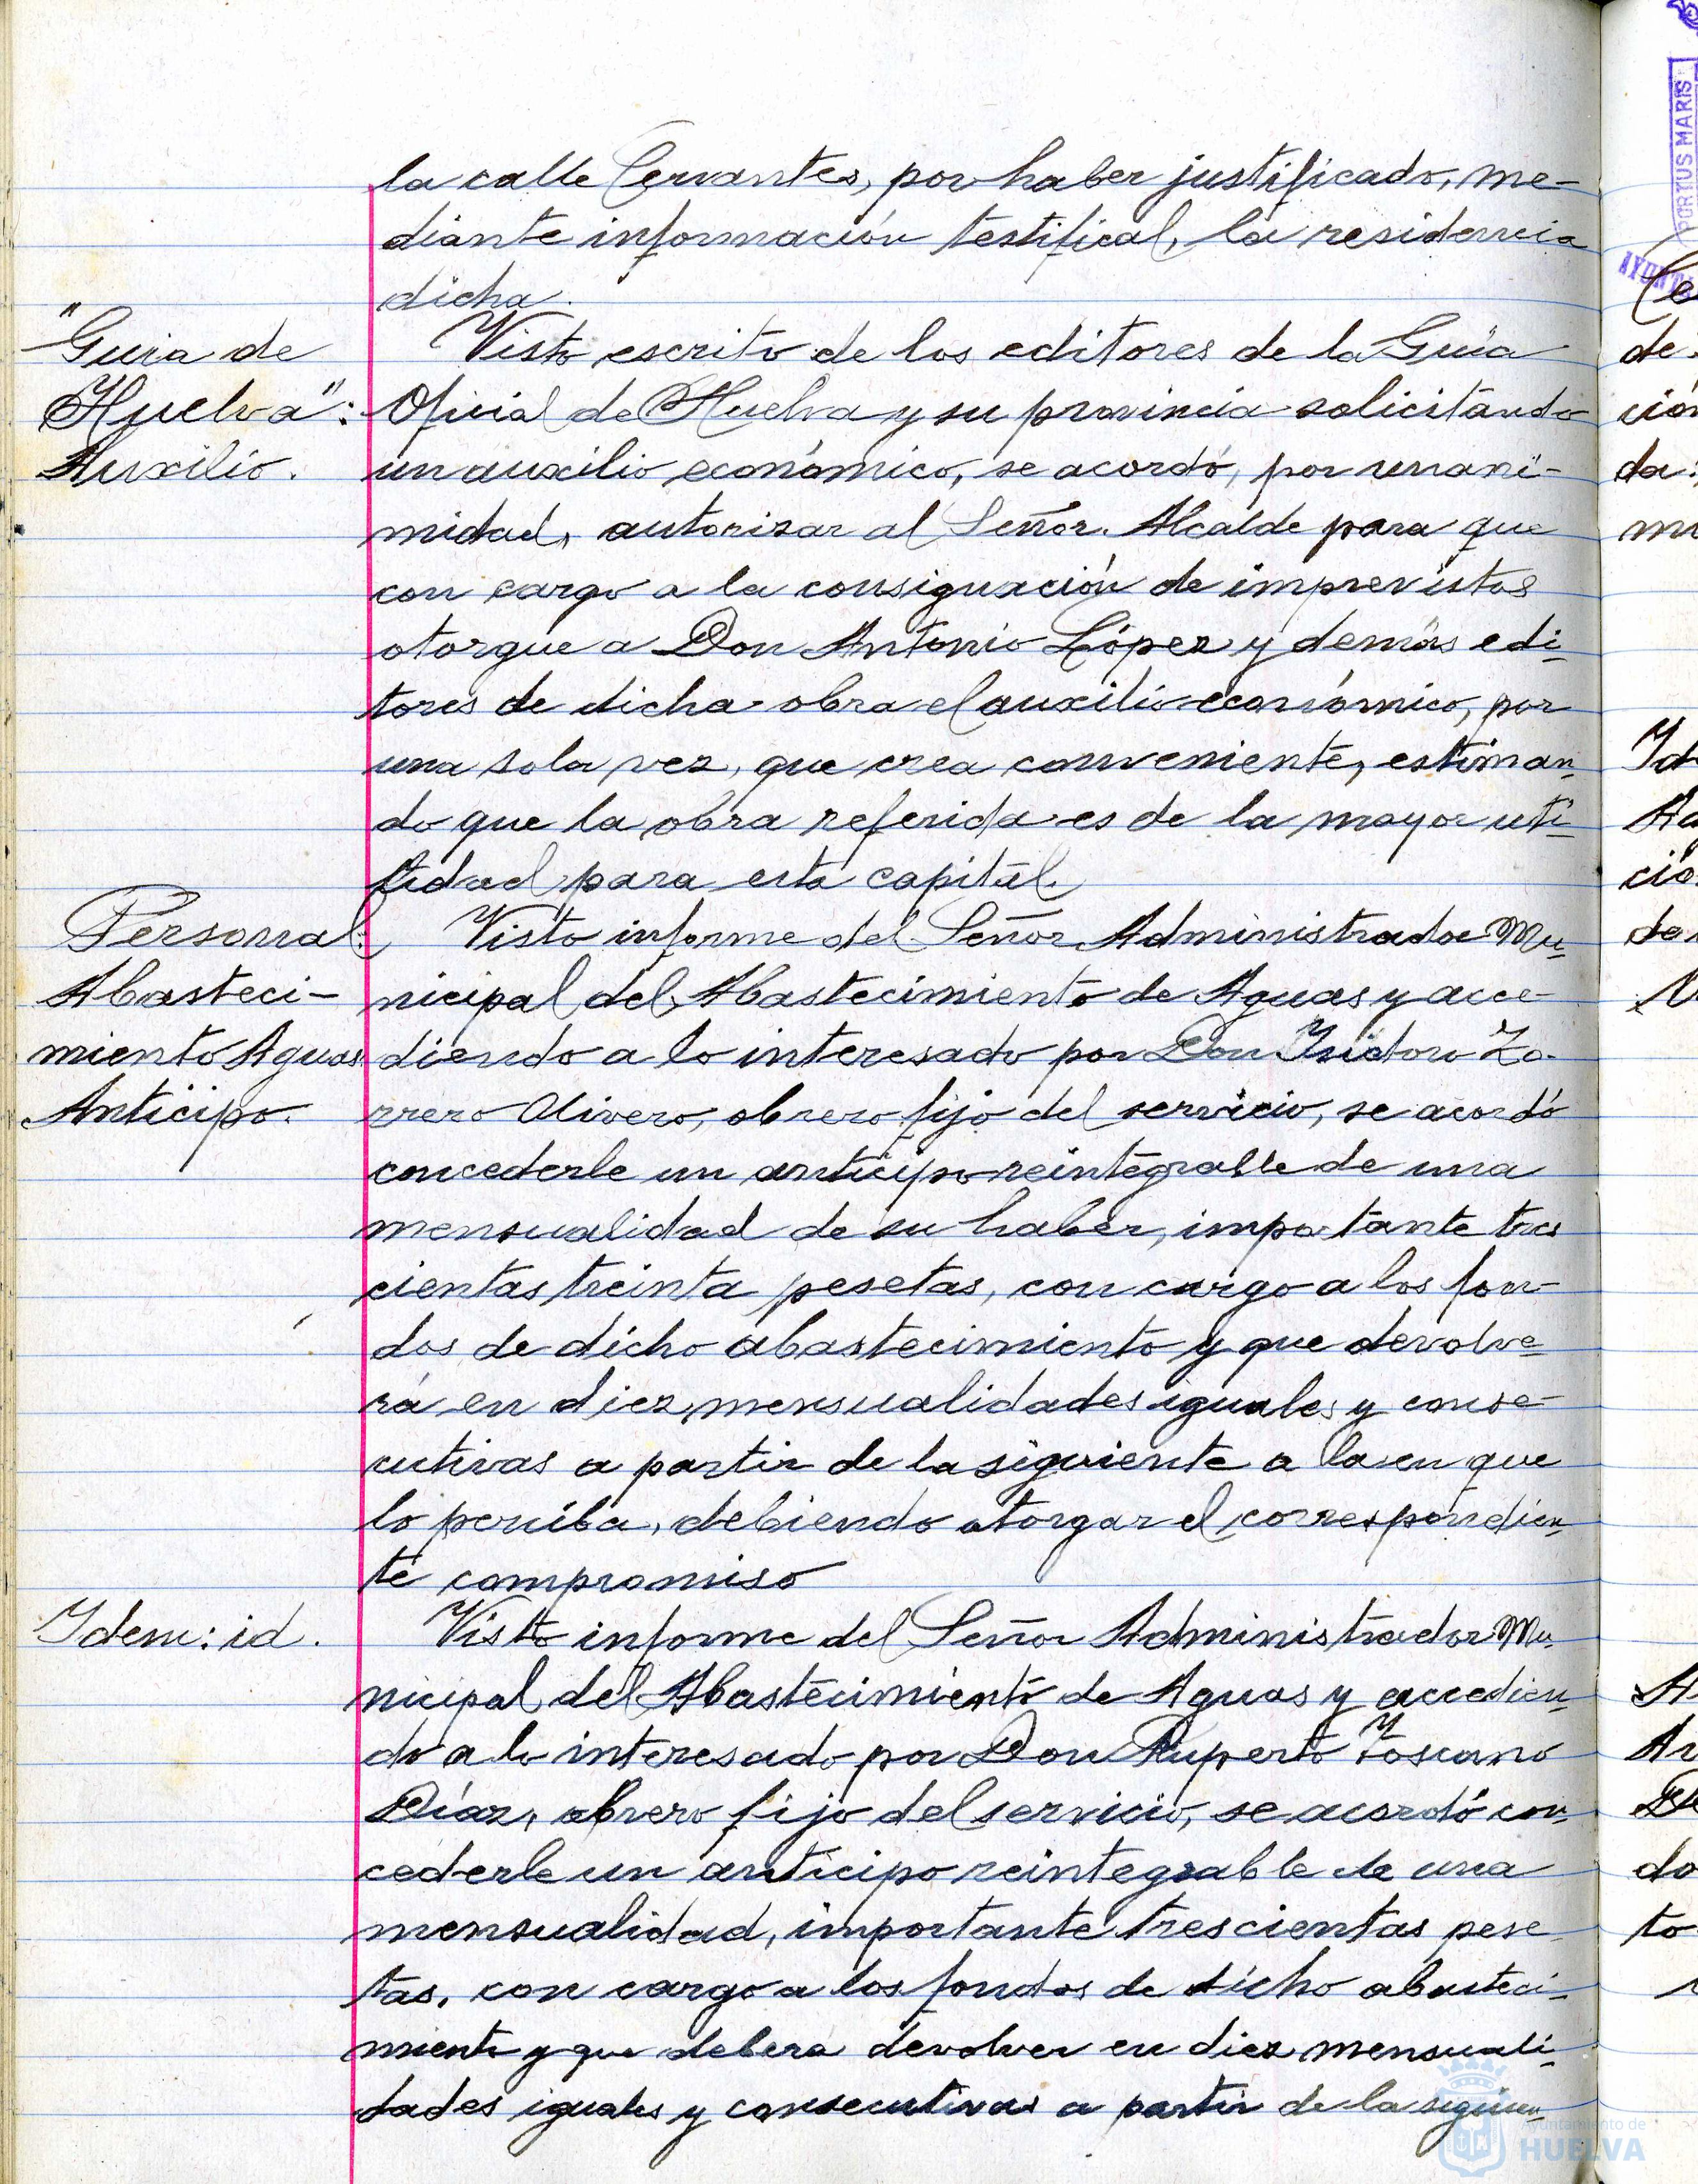 la calle Cervantes, por haber justificado, me-
diante información testifical, la residencia
dicha.
"Guia de
Huelva":
Auxilio.
Visto escrito de los editores de la Guia
Oficial de Huelva y su provincia solicitando
un auxilio económico, se acordó, por unani-
midad, autorizar al Señor Alcalde para que
con cargo a la consignación de imprevistos
otorgue a Don Antonio López y demás edi-
tores de dicha obra el auxilio económico, por
una sola vez, que crea conveniente, estiman-
do que la obra referida es de la mayor uti-
lidad para esta capital.
Personal:
Abasteci-
miento Aguas
Anticipo.
Visto informe del Señor Administrador Mu-
nicipal del Abastecimiento de Aguas y acce-
diendo a lo interesado por Don Isidoro Zo-
rrero Olivero, obrero fijo del servicio, se acordó
concederle un anticipo reintegrable de una
mensualidad de su haber, importante tres
cientas treinta pesetas, con cargo a los fon-
dos de dicho abastecimiento y que devolve-
rá en diez mensualidades iguales y conse-
cutivas a partir de la siguiente a la en que
lo perciba, debiendo otorgar el correspondien-
te compromiso
Idem: id.
Visto informe del Señor Administrador Mu-
nicipal del Abastecimiento de Aguas y accedien-
do a lo interesado por Don Ruperto Toscano
Díaz, obrero fijo del servicio, se acordó con-
cederle un anticipo reintegrable de una
mensualidad, importante trescientas pese
tas, con cargo a los fondos de dicho abasteci-
miento y que deberá devolver en diez mensuali-
dades iguales y consecutivas a partir de la siguien-
Ayuntamiento de
HUELVA
PORTUS MARIS
AYUNTA
Ce
de
ción
da:
mi
Id
Ag
ció
de
A
Ar
De
do
to